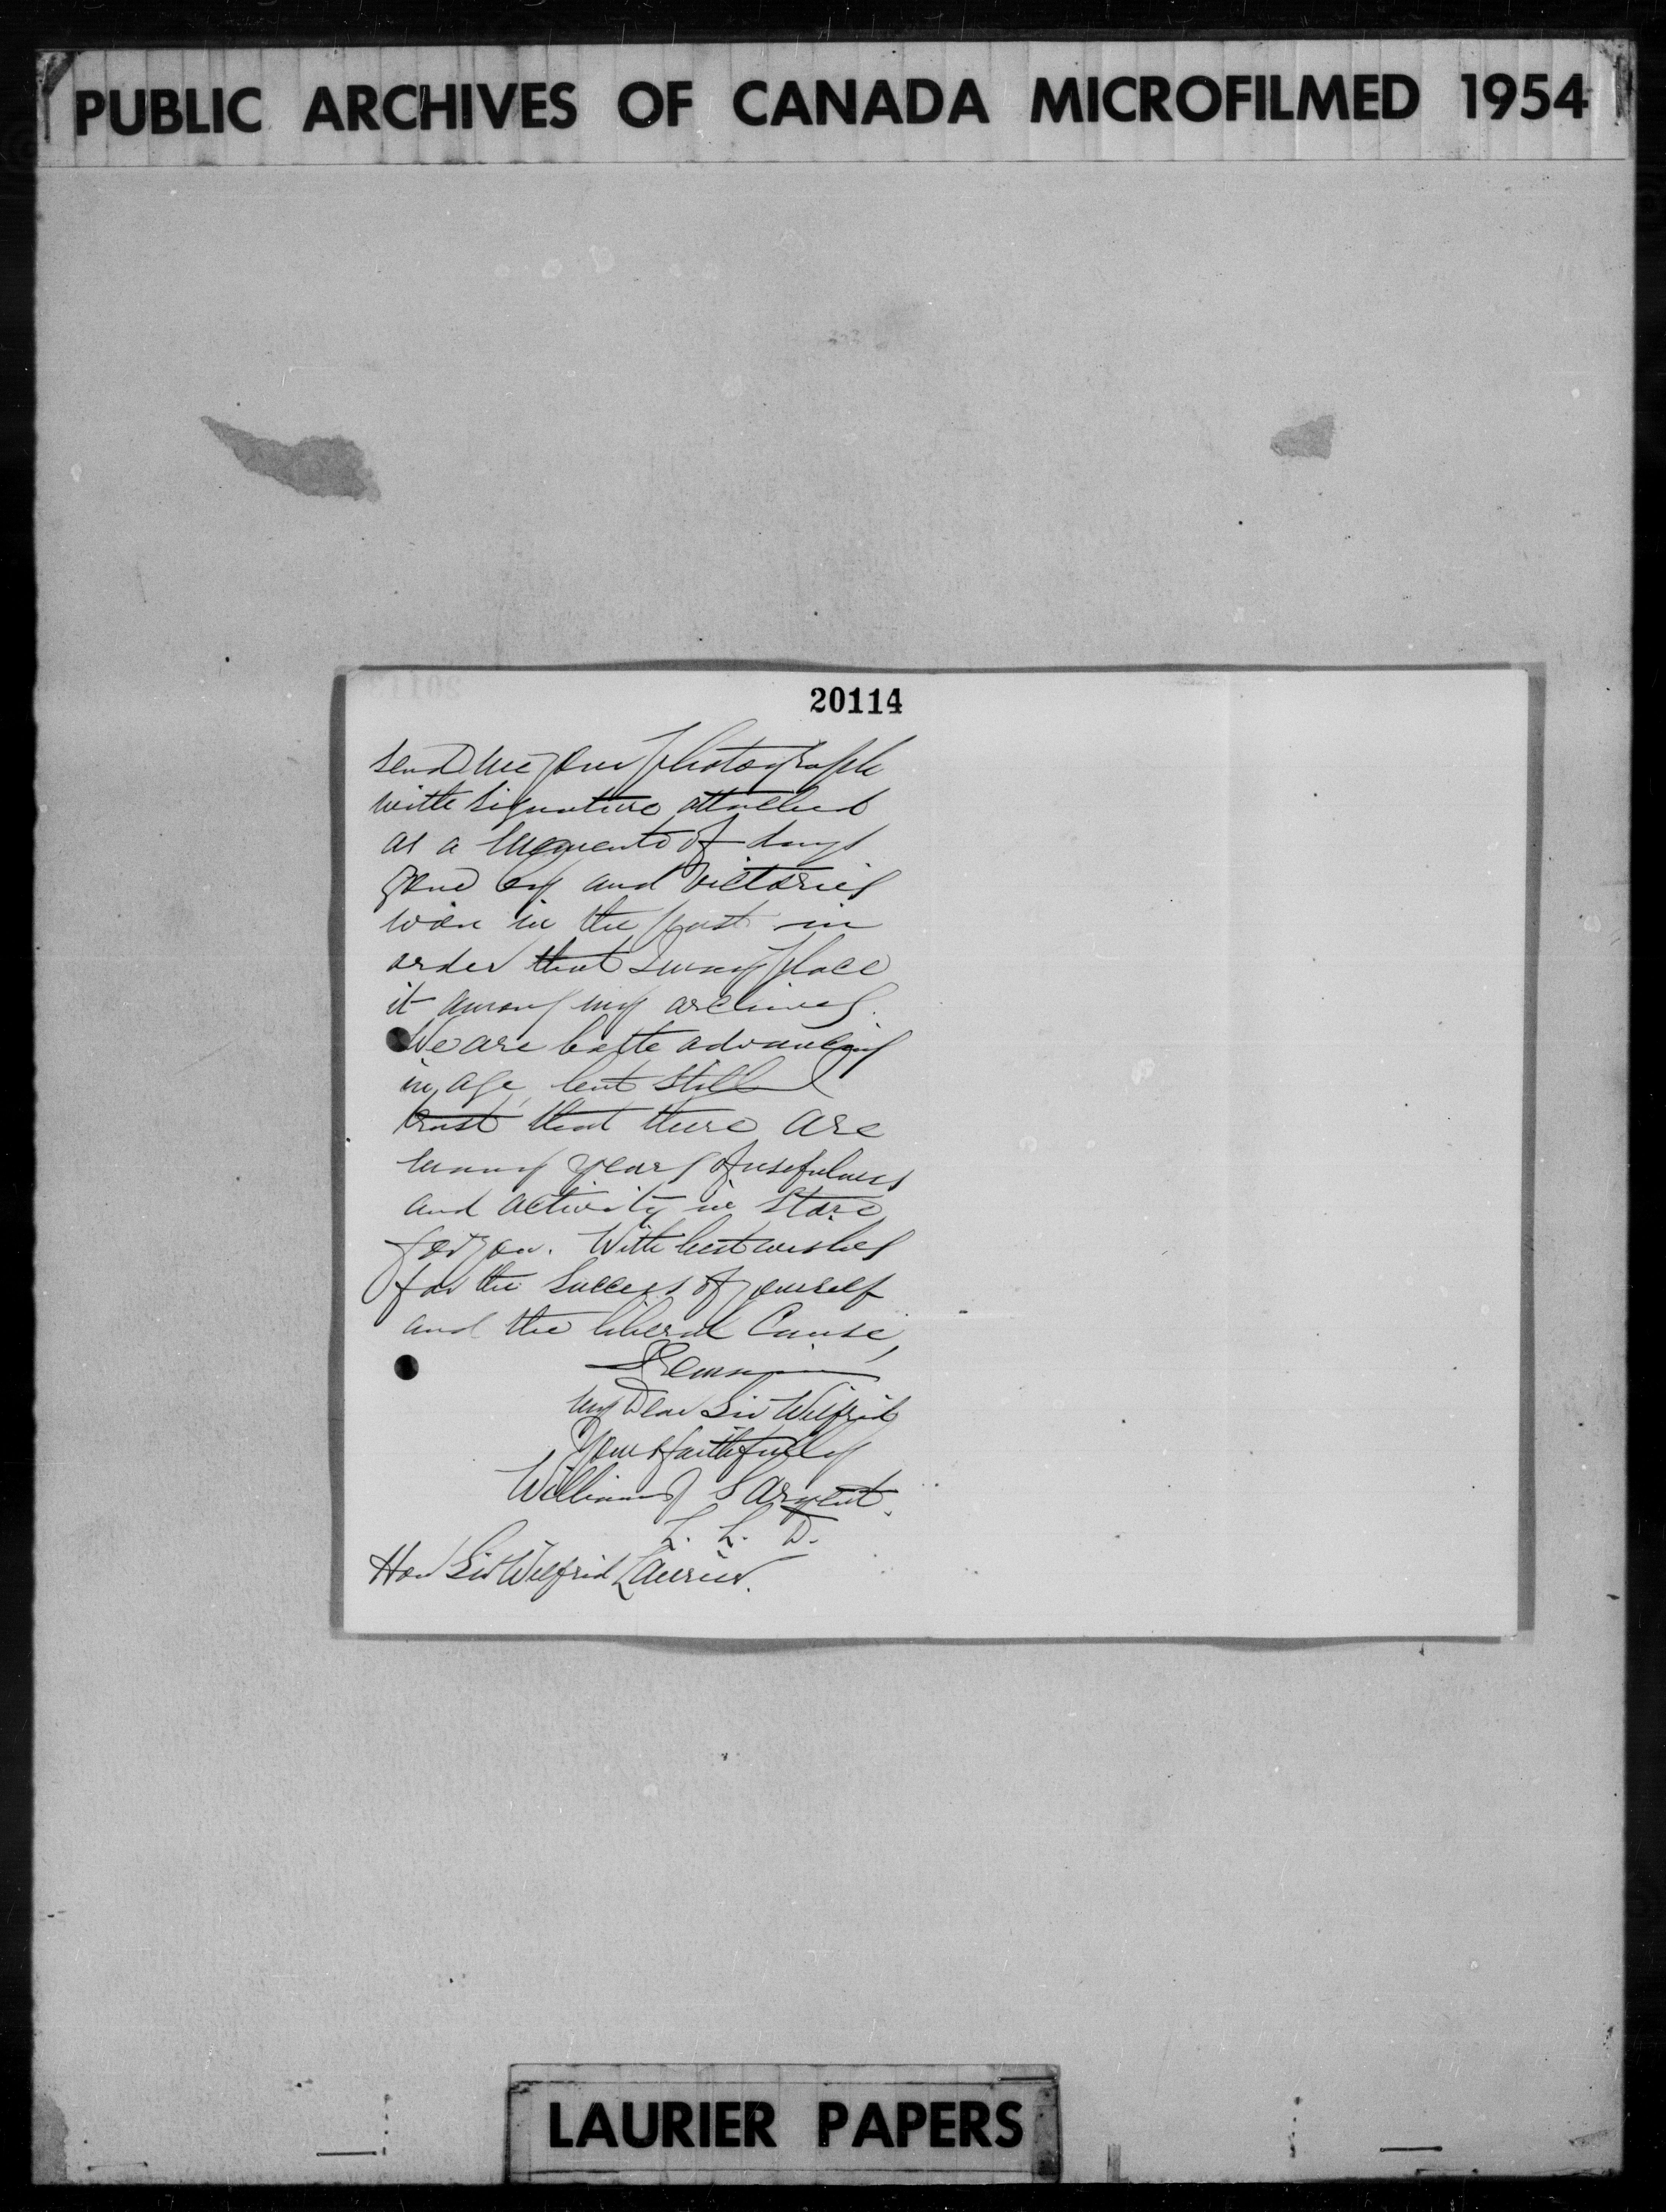 PUBLIC ARCHIVES OF CANADA MICROFILMED 1954
20114
send me your photograph
with signature attached
as a memento of days
gone by and victories
won in the past in
order that I may place
it among my archives.
We are both advancing
in age, but still I
trust that there are
many years of usefulness
and activity in store
for you. With best wishes
for the success of yourself
and the liberal Cause,
I remain
my Dear Sir Wilfrid
Yours faithfully
William Sargent.
L. L. D.
Hon Sir Wilfrid Laurier.
LAURIER PAPERS